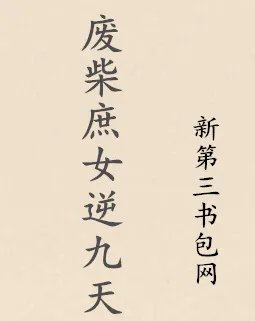 废柴庶女逆九天
新第三书包网